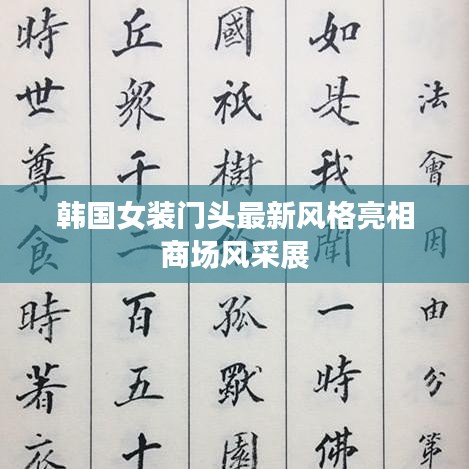 韩国女装门头最新风格亮相
商场风采展
法會因由分第
如是我聞一時佛
國祇樹給孤獨園
丘眾千二百五十
時世尊食時著衣